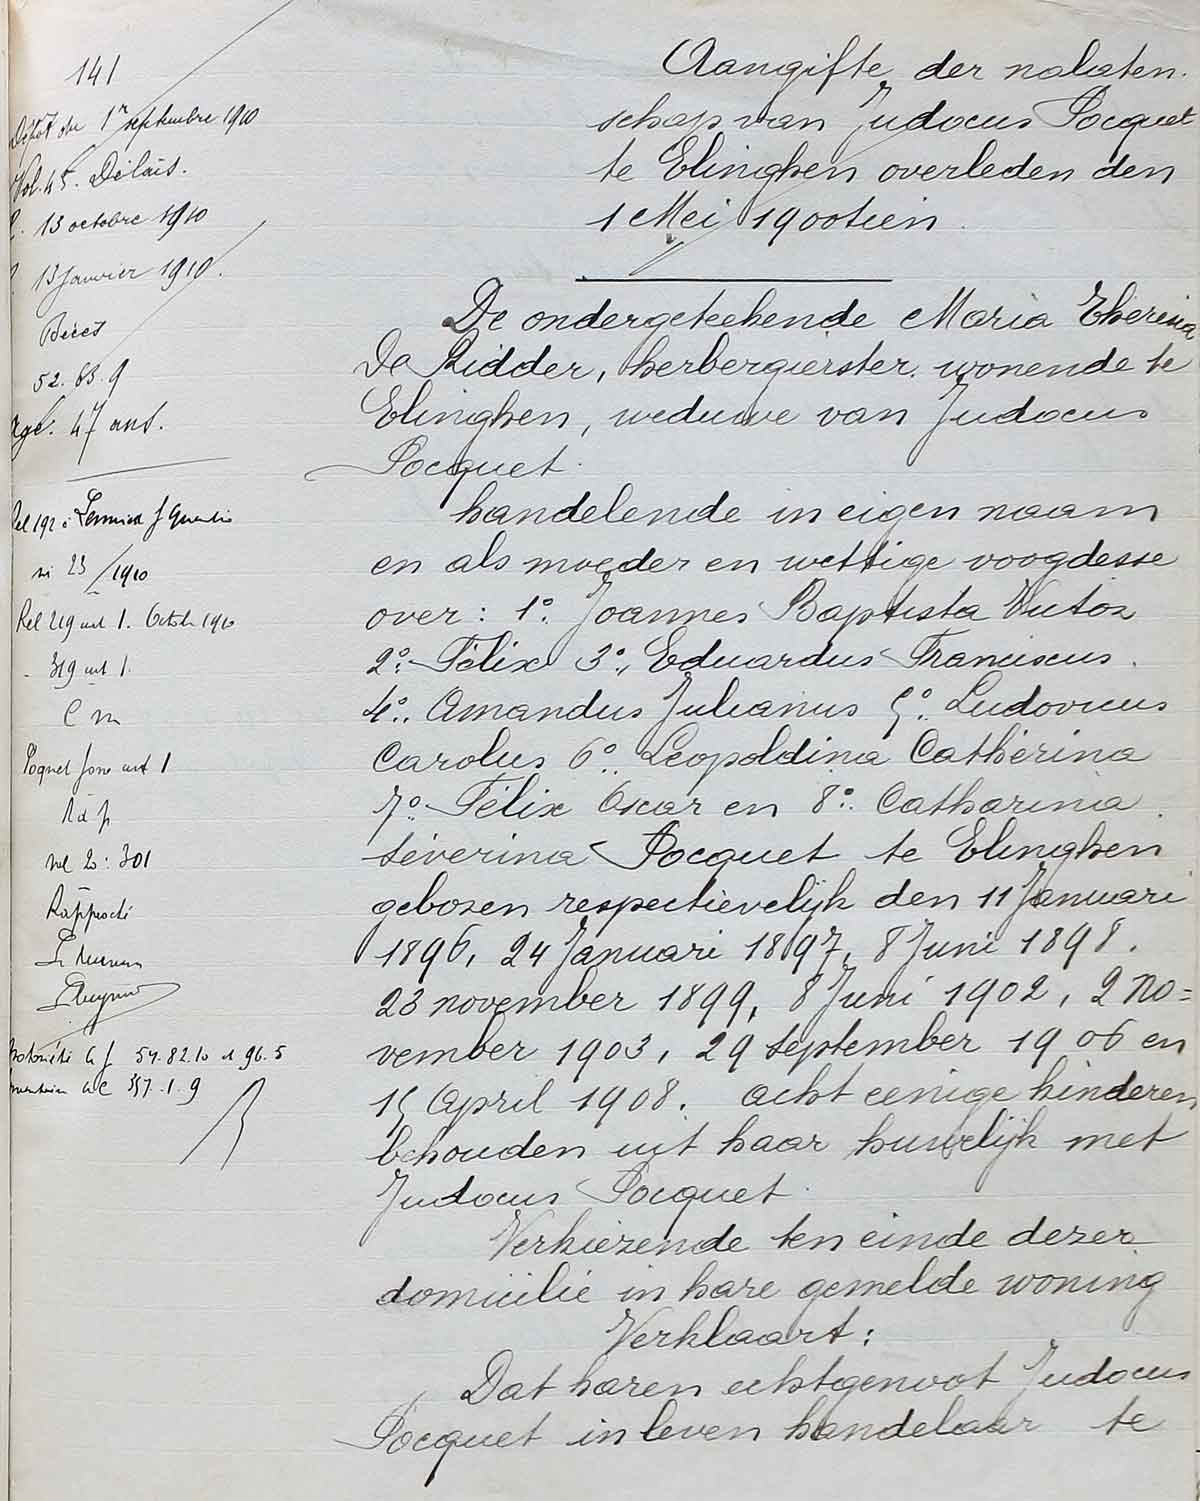 141
Dépôt du 1r septembre 1910
Vol. 45. Délais.
13 octobre 1910
13 Janvier 1910.
Décès
52. 63. 9
47 ans.
Aangifte der nalaten-
schap van Judocus Pocquet
te Elinghen overleden den
1 Mei 1900tien.
De ondergeteekende Maria Theresia
De Ridder, herbergierster wonende te
Elinghen, weduwe van Judocus
Pocquet.
handelende in eigen naam
en als moeder en wettige voogdesse
over: 1° Joannes Baptista Victor
2° Félix 3° Eduardus Franciscus.
4° Amandus Julianus 5° Ludovicus
Carolus 6° Leopoldina Catherina
7° Félix Oscar en 8° Catharina
Séverina Pocquet te Elinghen
geboren respectievelijk den 11 Januari
1896, 24 Januari 1897, 8 Juni 1898.
23 november 1899, 8 Juni 1902, 2 no=
vember 1903, 29 september 1906 en
15 April 1908. acht eenige kinderen
behouden uit haar huwelijk met
Judocus Pocquet.
Verkiezende ten einde dezer
domicilie in hare gemelde woning
Verklaart:
Dat haren echtgenoot Judocus
Pocquet in leven handelaar te
Rel 192
23/1910
Rel 219 art 1. Octobre 1910
319 art 1.
art 1
vol 20: 301
54.82.10 et 96.5
357.1.9